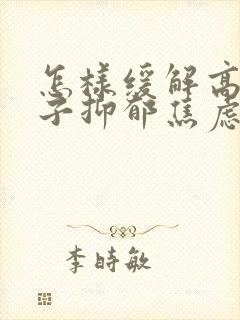 怎樣緩解高
子抑郁焦慮
李時敏